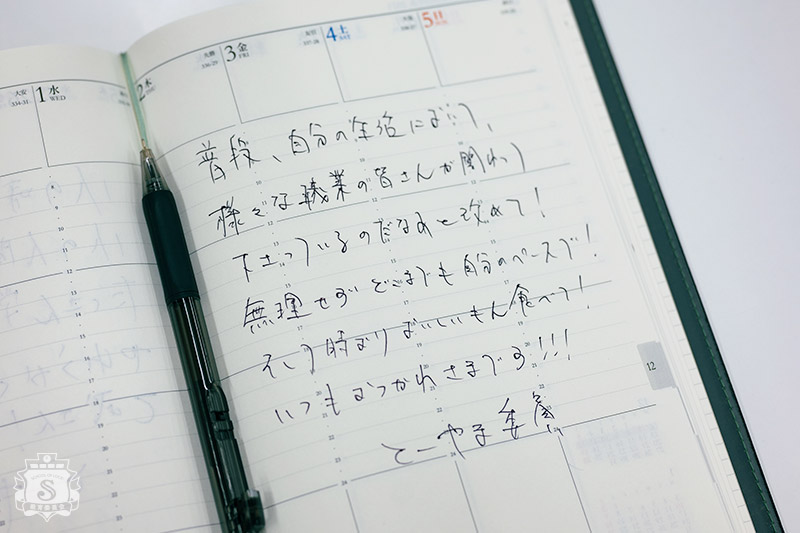 大安
334-31
1 水
WED
2 木
先勝
336-29
3 金
FRI
友引
337-28
4 土
SAT
先負
338-27
5 日
普段、自分の生活において、
様々な職業の皆さんが関わって
下さっているのだなあと改めて！
無理せずどこまでも自分のペースで！
そして時よりおいしいもん食べて！
いつもおつかれさまです!!!
とーやま委員
12
S